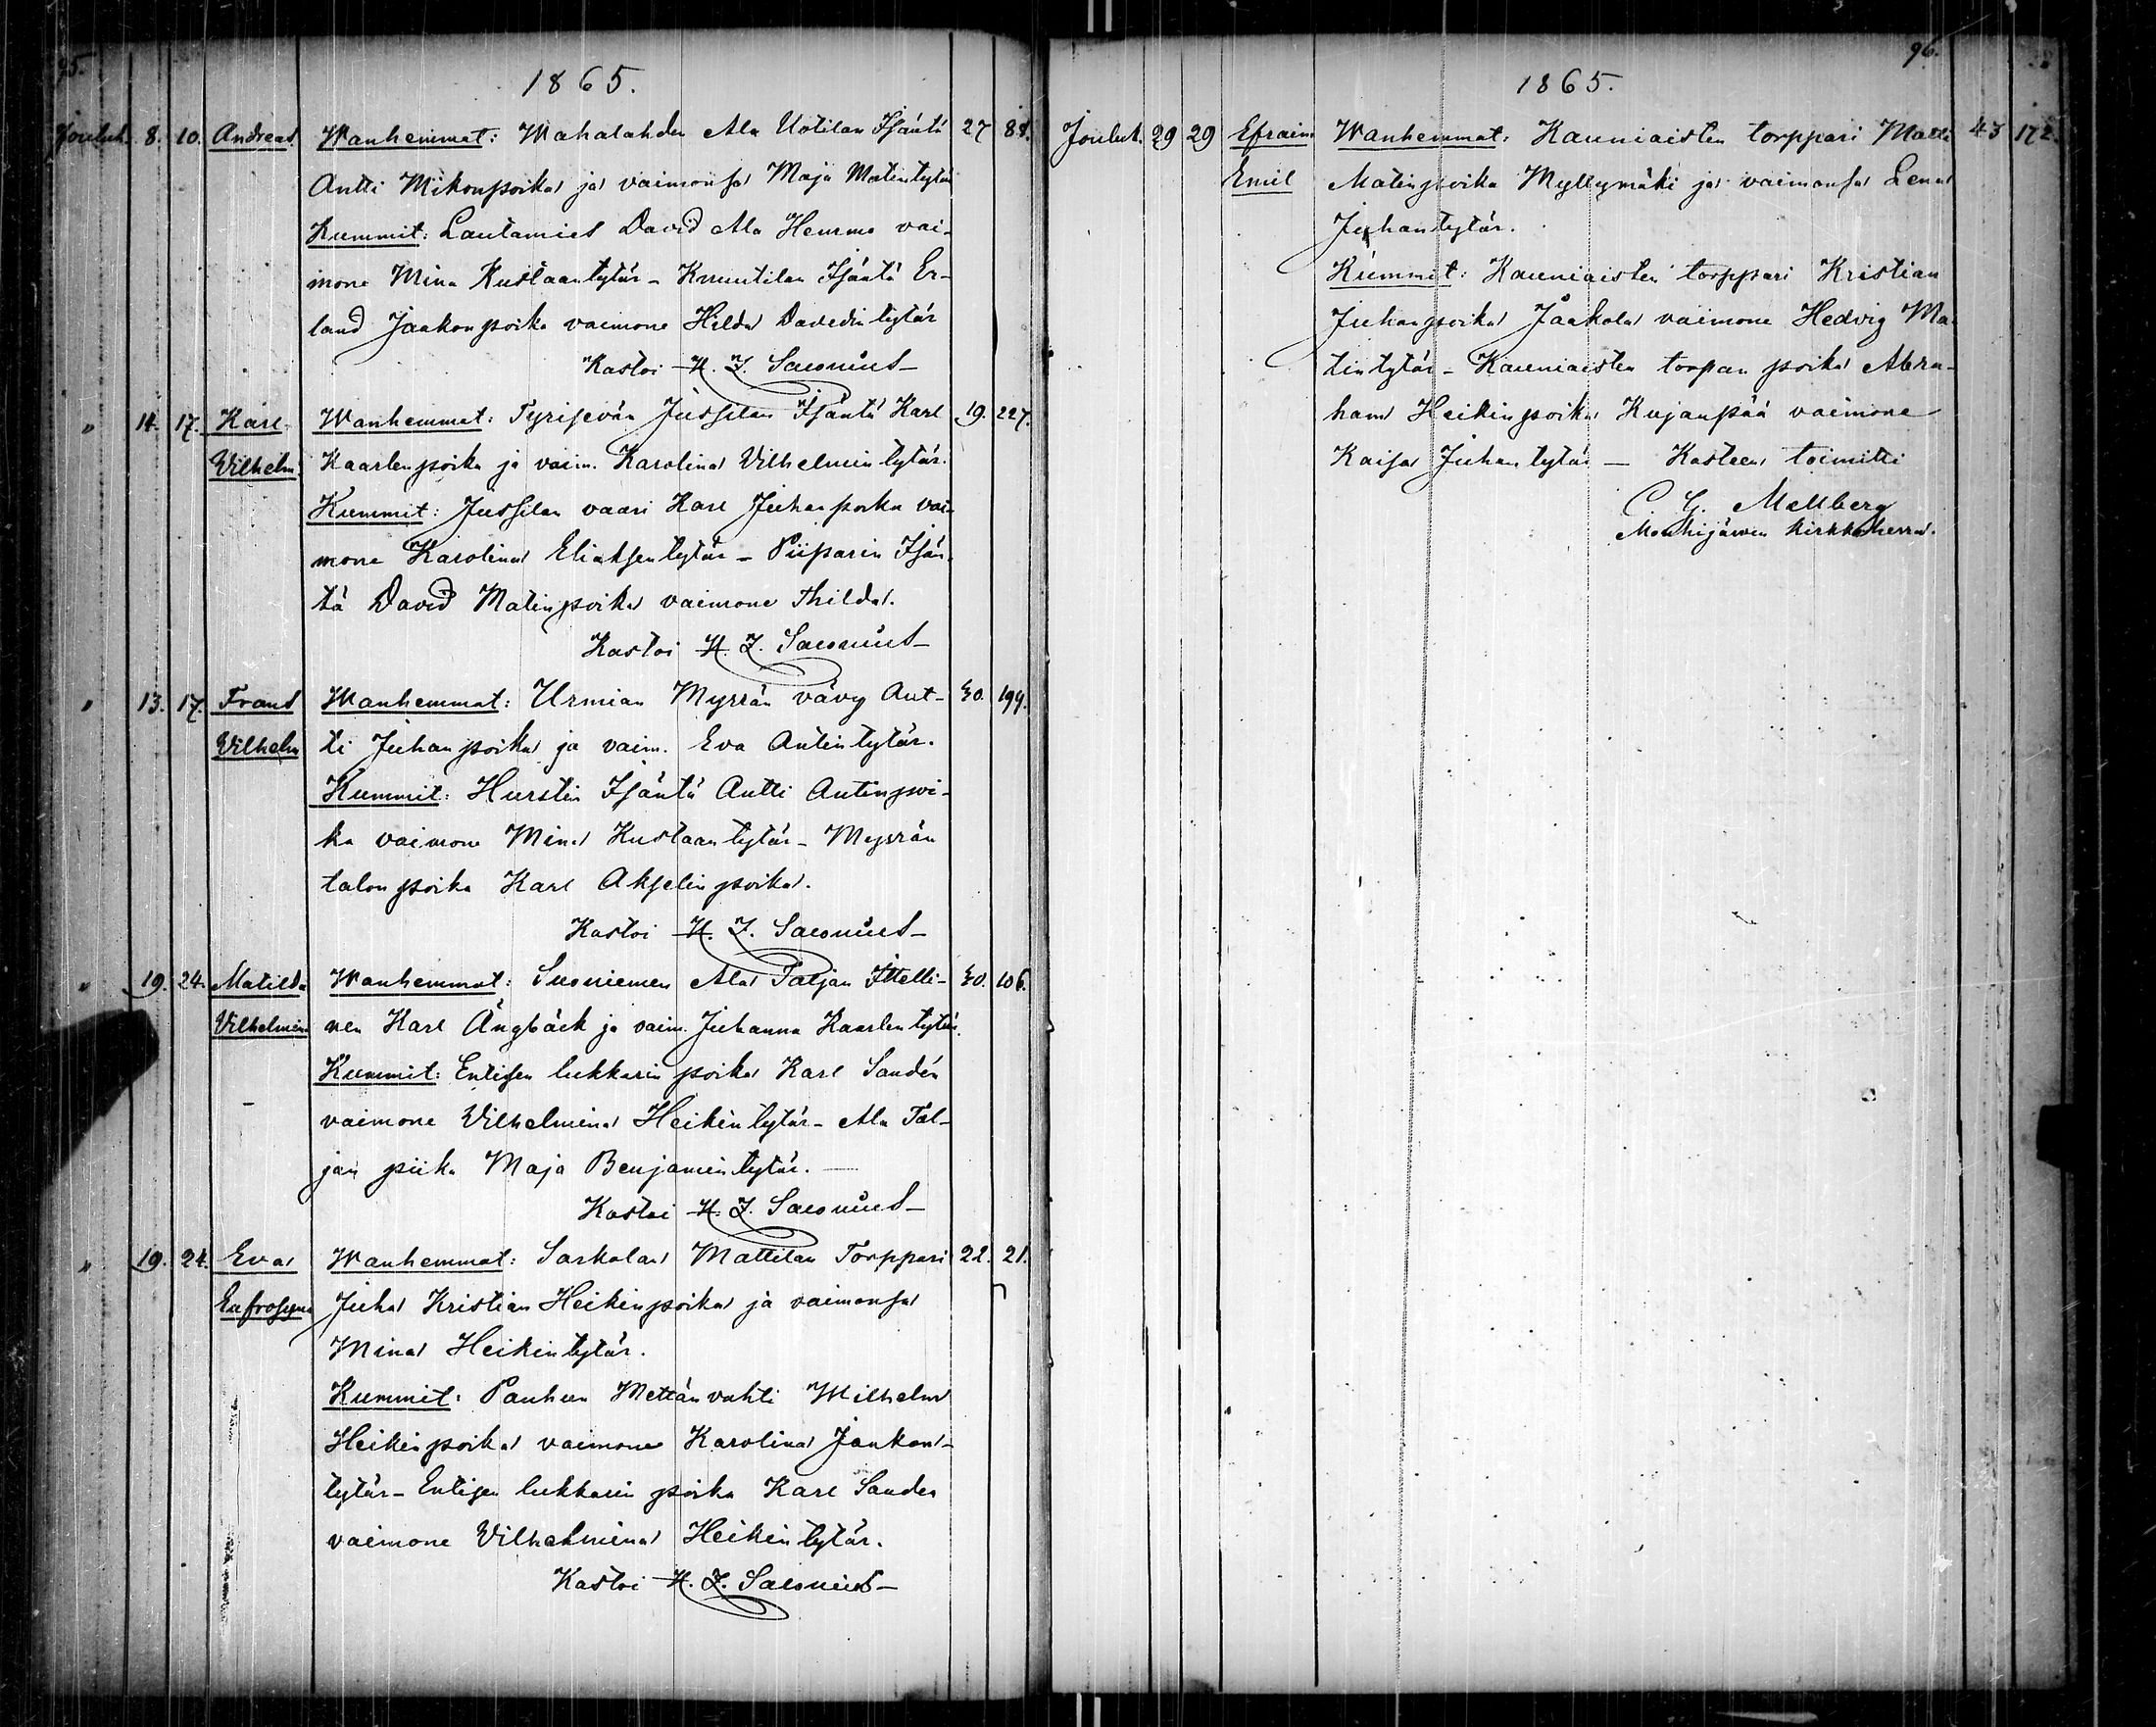 95.
1865.
Jouluk. 8. 10. Andreas Wanhemmat: Mahalahden Ala Uotilan Isäntä 27 88.
Antti Mikonpoika ja vaimonsa Maja Matintytär
Kummit: Lautamies David Ala Hemmo vai-
mone Mina Kustaantytär - Knuutilan Isäntä Er-
land Jaakonpoika vaimone Hilda Davidintytär
Kastoi H. J. Saconius
" 14. 17. Karl Wanhemmat: Tyrisevän Jussilan Isäntä Karl 19. 227.
Vilhelm Kaarlenpoika ja vaim. Karolina Vilhelmintytär.
Kummit: Jussilan vaari Karl Juhanpoika vai-
mone Karolina Eliaksentytär - Piiparin Isän-
tä David Matinpoika vaimone Thilda.
Kastoi H. J. Saconius
" 13. 17. Frans Wanhemmat: Urmian Myrrän vävy Ant- 30. 199.
Vilhelm ti Juhanpoika ja vaim. Eva Antintytär.
Kummit: Hurstin Isäntä Antti Antinpoi-
ka vaimone Mina Kustaantytär - Myrrän
talon poika Karl Akselinpoika.
Kastoi H. J. Saconius
" 19. 24. Matilda Wanhemmat: Suoniemen Ala Taljan Ittelli- 30. 106.
Vilhelmina nen Karl Ängbäck ja vaim. Juhanna Kaarlentytär.
Kummit: Entisen lukkarin poika Karl Sandén
vaimone Vilhelmina Heikintytär - Ala Tal-
jan piika Maja Benjamintytär.
Kastoi H. J. Saconius
" 19. 24. Eva Wanhemmat: Sarkolan Mattilan Torppari 22. 21.
Eufrosyna Juha Kristian Heikinpoika ja vaimonsa
Mina Heikintytär.
Kummit: Pauhun Mettänvahti Wilhelm
Heikinpoika vaimone Karolina Jaakon-
tytär - Entisen lukkarin poika Karl Sanden
vaimone Vilhelmina Heikintytär.
Kastoi H. J. Saconius
96.
1865.
Jouluk. 29 29 Efraim Wanhemmat: Kauniaisten torppari Matti 43 172.
Emil Matinpoika Myllymäki ja vaimonsa Lena
Juhantytär.
Kummit: Kauniaisten torppari Kristian
Juhanpoika Jaakola vaimone Hedvig Ma-
tintytär - Kauniaisten torpan poika Abra-
ham Heikinpoika Kujanpää vaimone
Kaisa Juhantytär - Kasteen toimitti
C. G. Mellberg
Mouhijärven kirkkoherra.